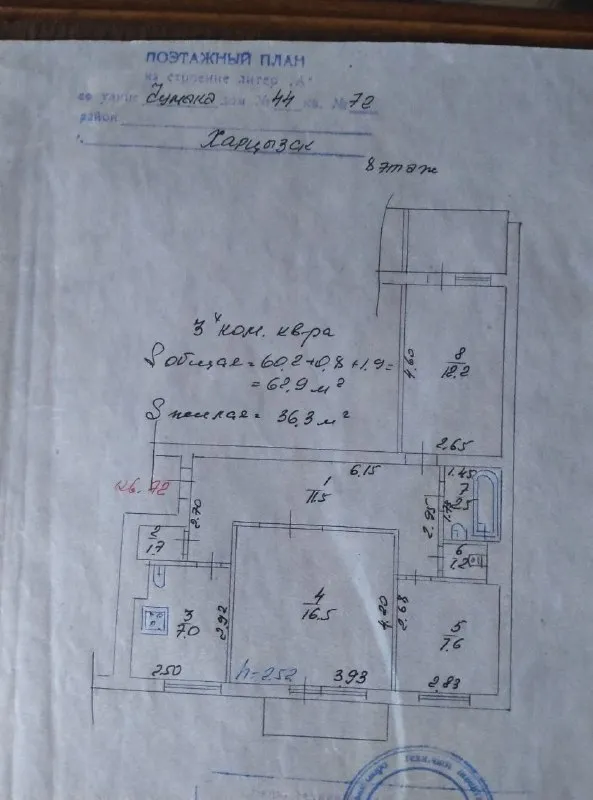 ПОЭТАЖНЫЙ ПЛАН
на строение литер „А"
по улице Чумака дом № 44 кв. № 72
район
г. Харцызск
8 этаж
3х ком. кв-ра
S общая = 60.2+0.8+1.9=
= 62.9 м²
S жилая = 36.3 м²
4.60
8
12.2
2.65
кв. 72
6.15
1.45
1
11.5
2.70
2.95
7
2.5
1.75
2
1.7
6
1.2
3
7.0
2.92
4
16.5
4.20
2.68
5
7.6
2.50
h=2.52
3.93
2.83